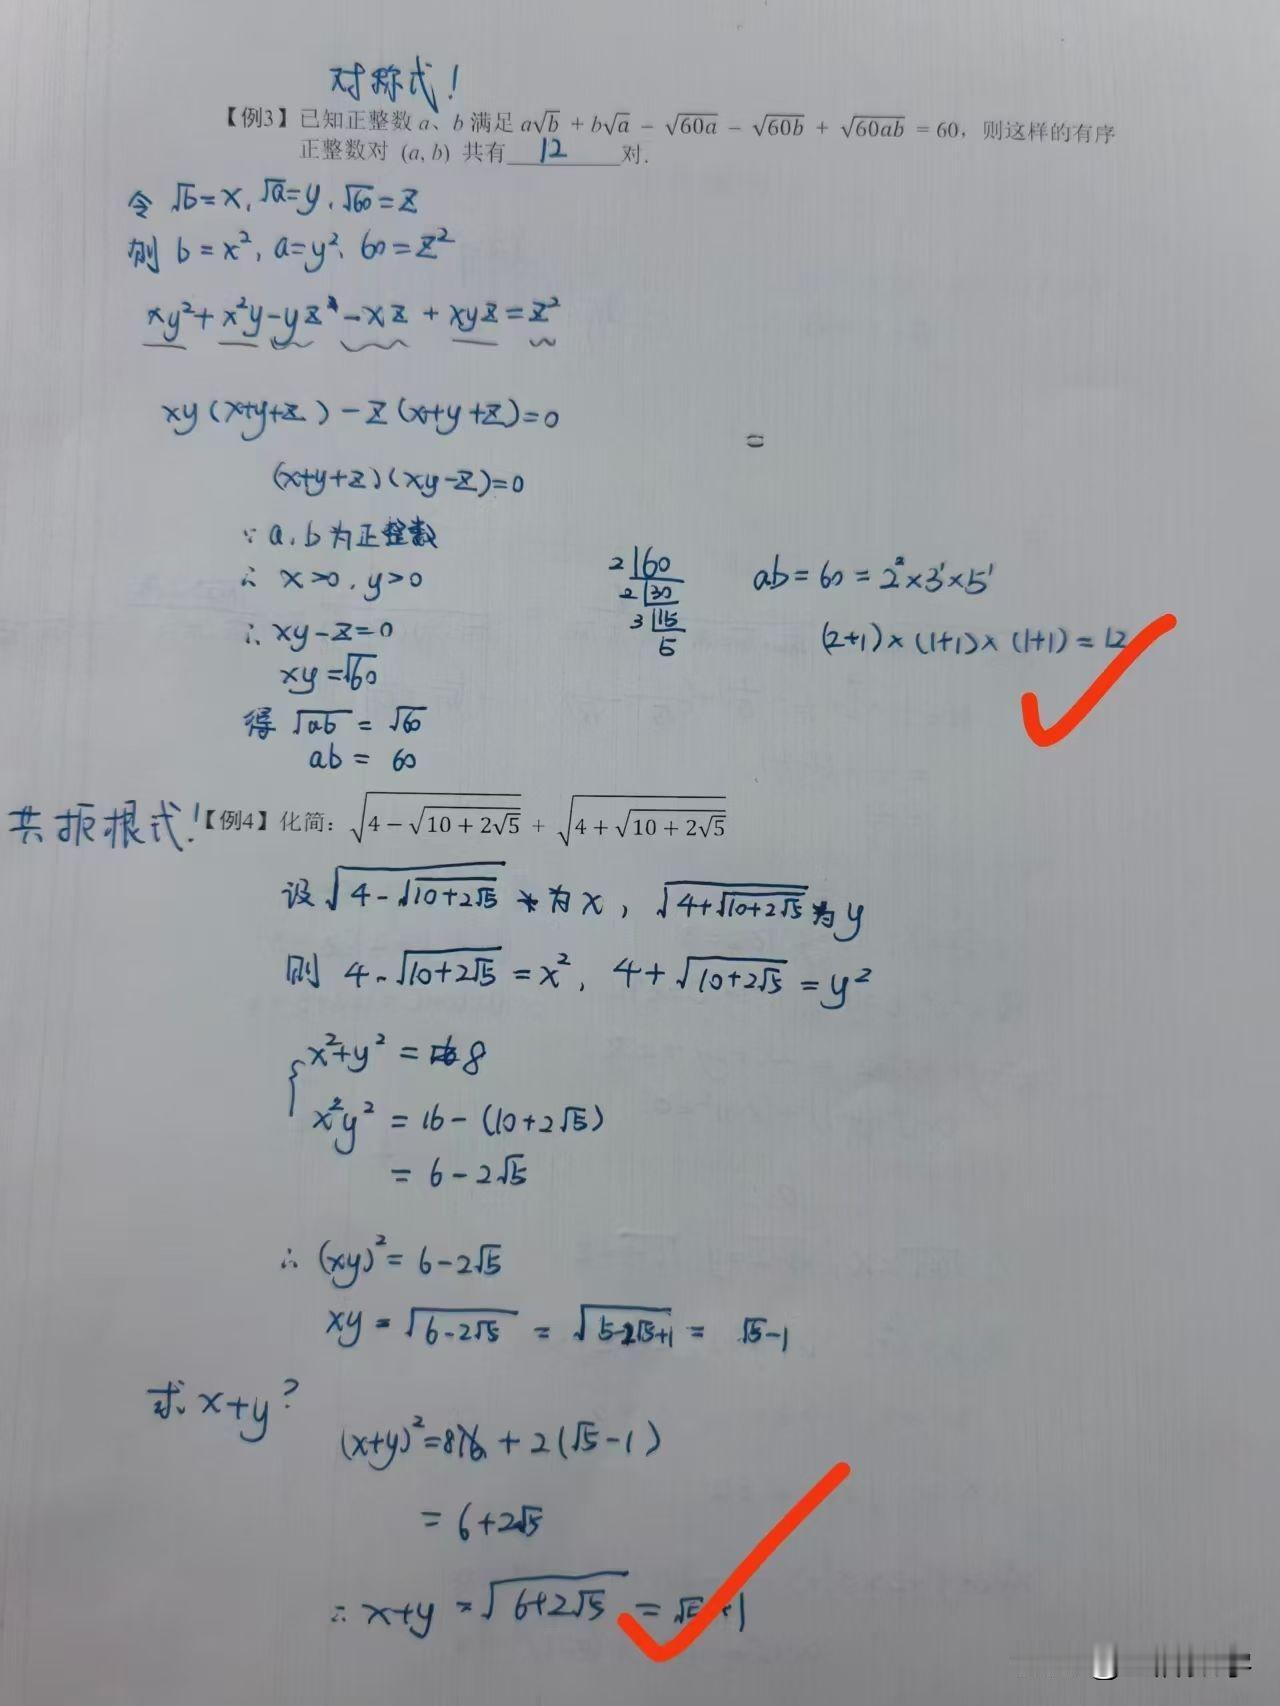 对称式！
【例3】已知正整数 a、b 满足 a√b + b√a − √60a − √60b + √60ab = 60，则这样的有序
正整数对 (a, b) 共有 12 对.
令 √b=x, √a=y, √60=z
则 b=x², a=y², 60=z²
xy²+x²y-yz-xz+xyz=z²
xy(x+y+z)-z(x+y+z)=0
=
(x+y+z)(xy-z)=0
∵ a、b为正整数
∴ x>0, y>0
∴ xy-z=0
xy=√60
得 √ab = √60
ab = 60
2 60
2 30
3 15
5
ab=60=2²×3¹×5¹
(2+1)×(1+1)×(1+1)=12
共扼根式！【例4】化简：√(4−√(10+2√5)) + √(4+√(10+2√5))
设√(4-√(10+2√5))为x，√(4+√(10+2√5))为y
则 4-√(10+2√5)=x², 4+√(10+2√5)=y²
x²+y²=8
x²y²=16-(10+2√5)
=6-2√5
∴ (xy)²=6-2√5
xy=√(6-2√5)=√(5-2√5+1)=√5-1
求x+y?
(x+y)²=8+2(√5-1)
=6+2√5
∴ x+y=√(6+2√5)=√5+1